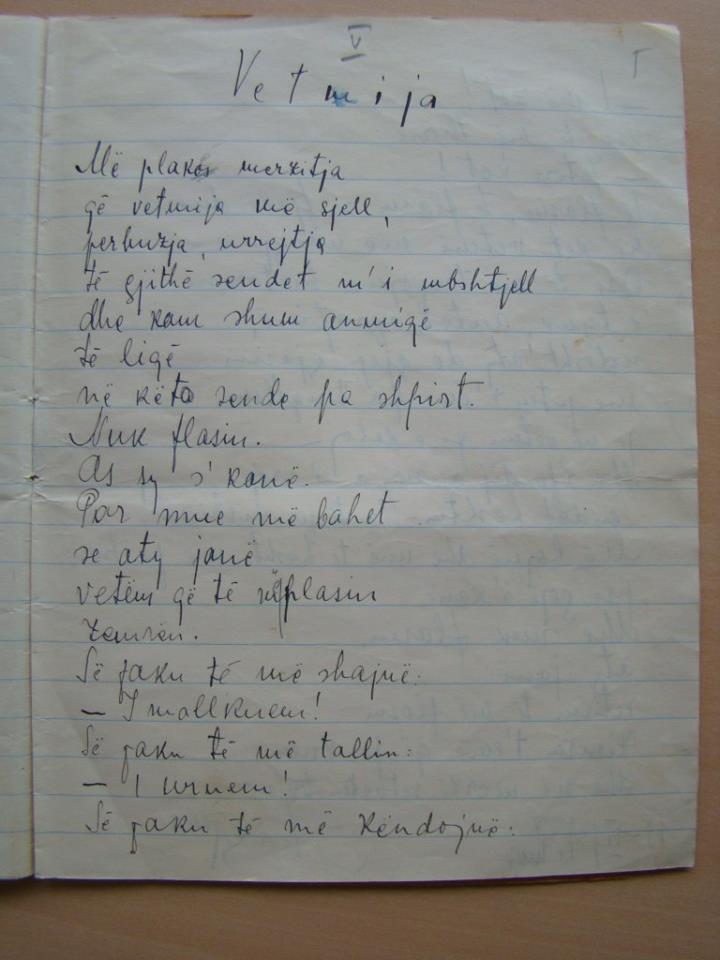 V
I
Vetmija
Më plakos merzitja
që vetmija më sjell,
perbuzja, urrejtja
të gjithë sendet m'i mbshtjell
dhe kam shum anmiqë
të liqë
në këto sende pa shpirt.
Nuk flasin.
As sy s'kanë.
Por mue më bahet
se aty janë
vetëm që të plasin
zemrën.
Së paku të më shajnë:
– I mallknem!
Së paku të më tallin:
– I urnem!
Së paku të më këndojnë: